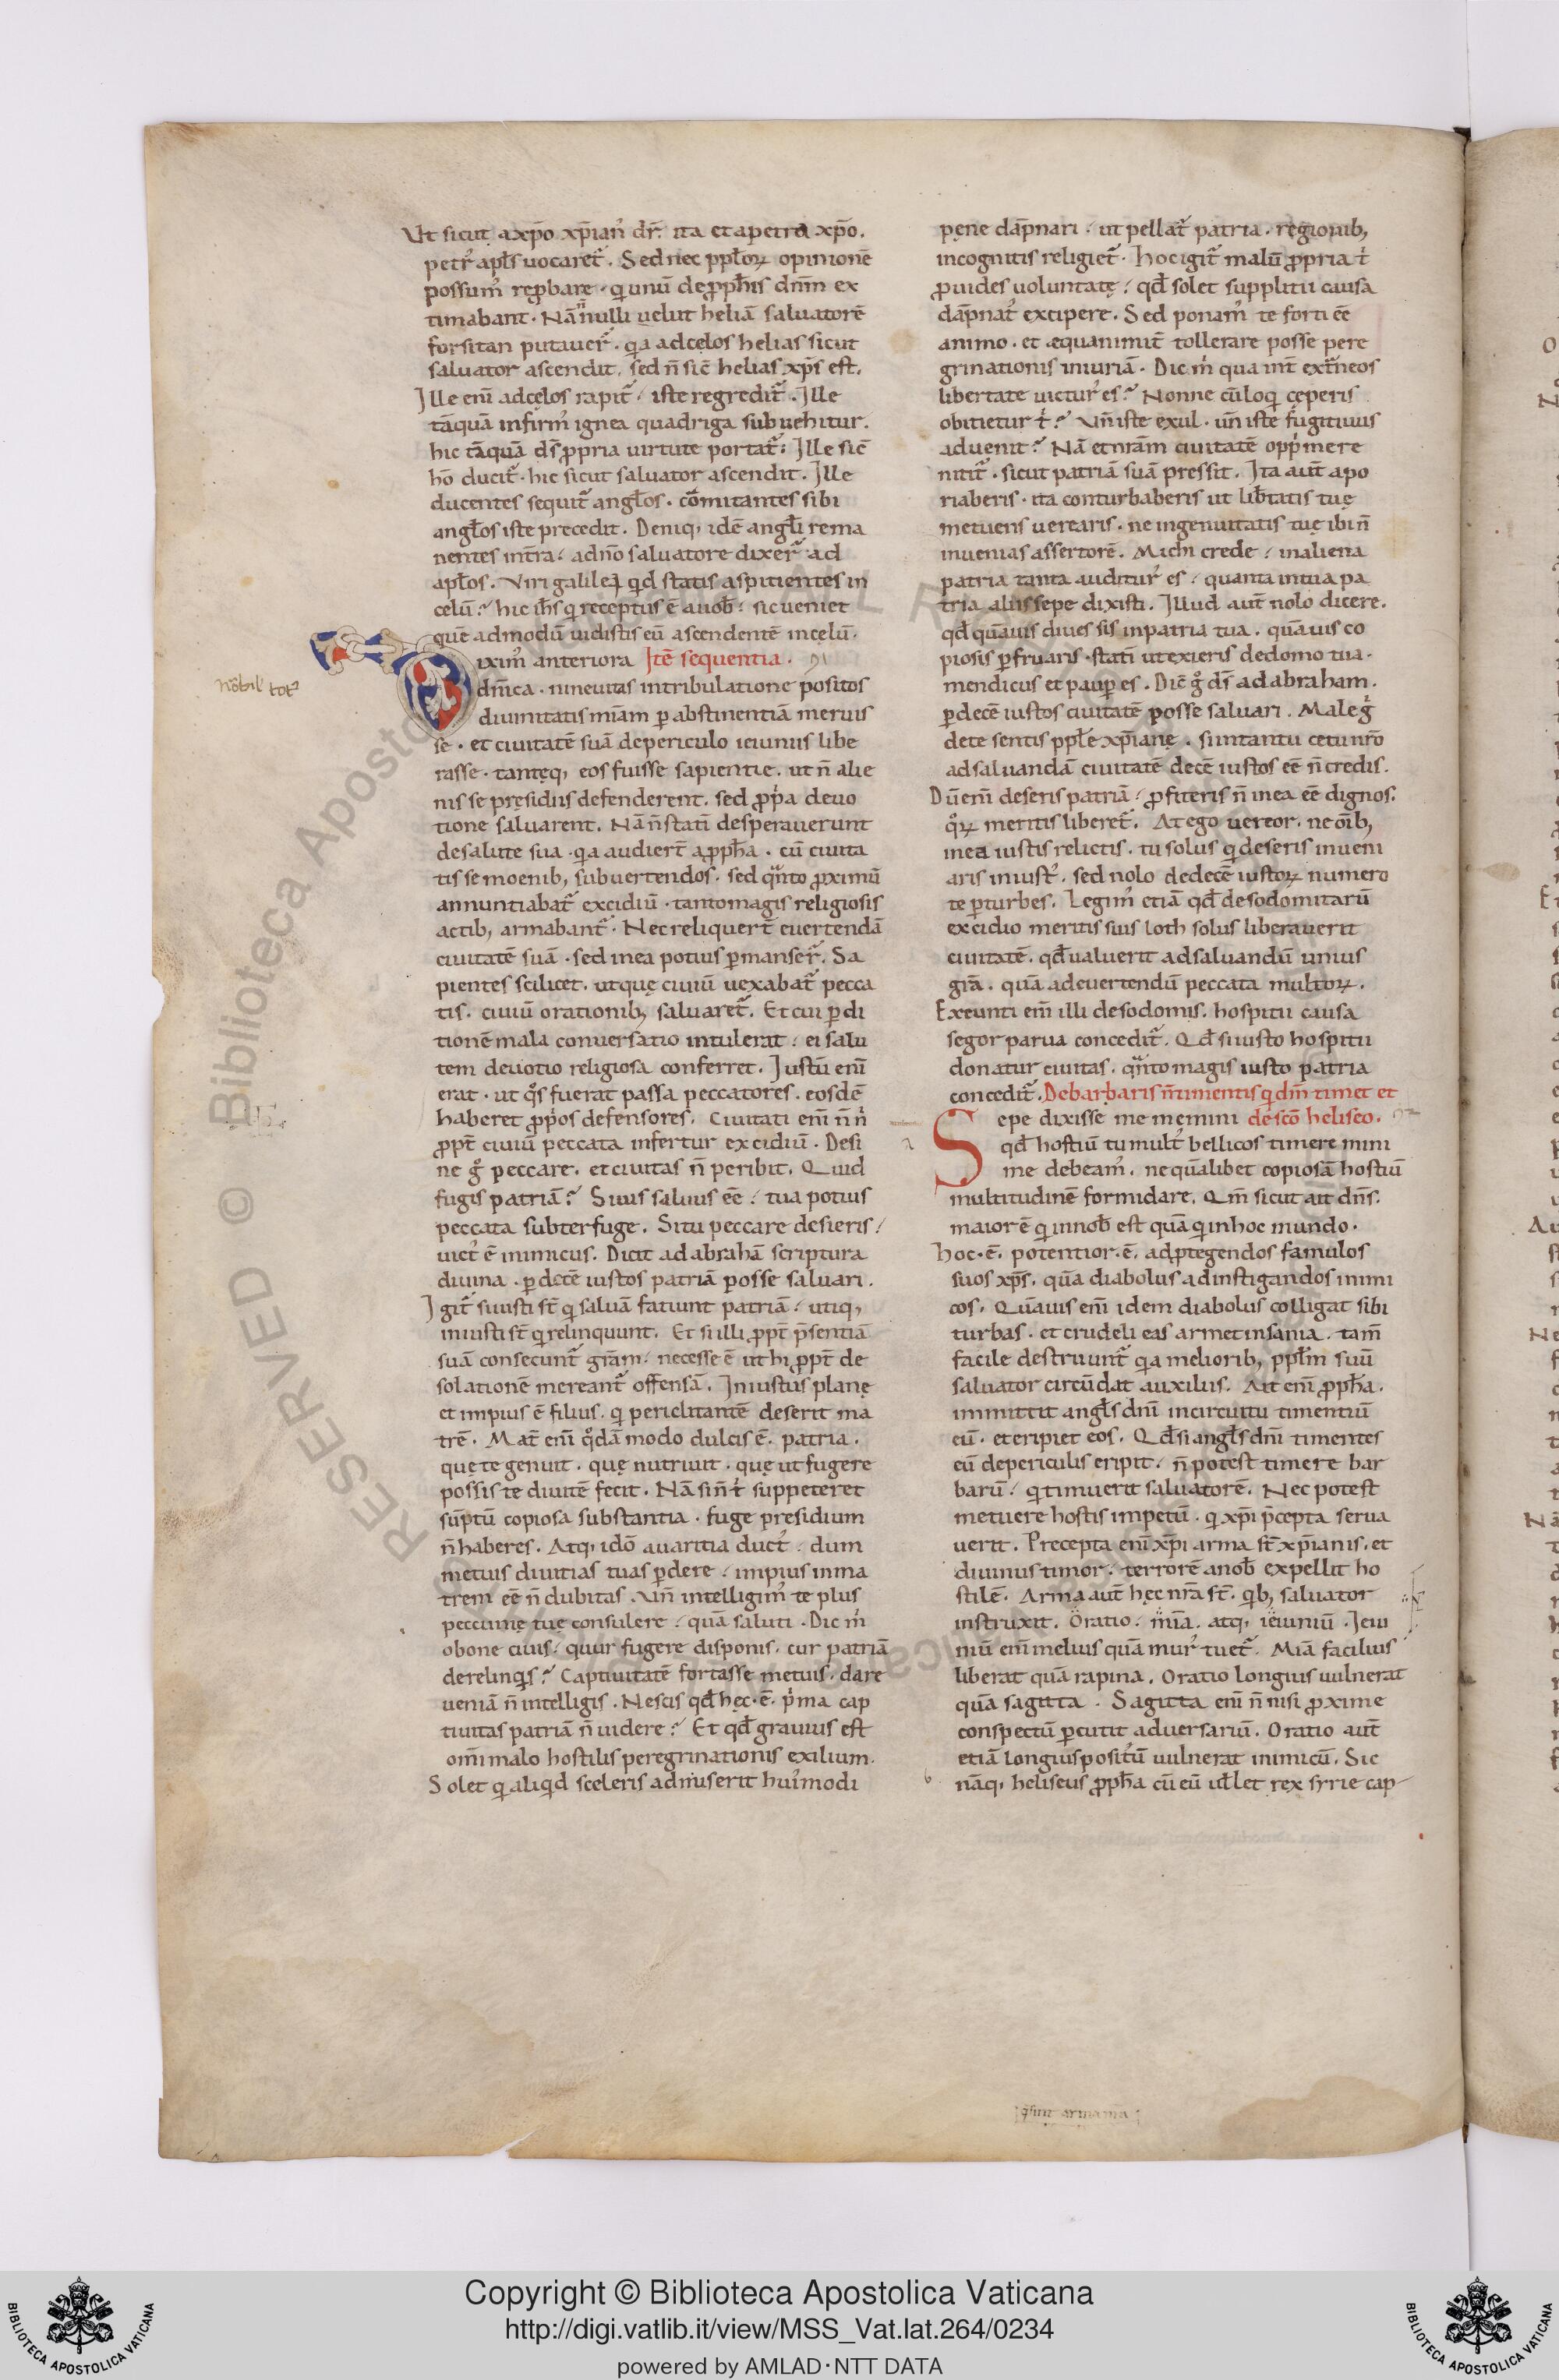 Ut sicut a xp̄o xp̄ian᷒ dr̄. ita et a petra xp̄o.
petr᷒ apl̄s uocaret᷑. Sed nec ppl̄oꝝ opinionē
possum᷒ rep̱bare. qui unū de ꝓph̄is dn̄m ex
timabant. Nā nulli uelut heliā saluatorē
forsitan putauer᷑. qa ad cęlos helias sicut
saluator ascendit. sed n̄ sic̄ helias xp̄s est.
Ille eni ad cęlos rapit᷑. iste regredit᷑. Ille
tāquā infirm᷒ ignea quadriga subuehitur.
hic tāquā ds̄ ꝓpria uirtute portat᷑: Ille sic̄
hō ducit᷑. hic sicut saluator ascendit. Ille
ducentes sequit᷑ angl̄os. cōmitantes sibi
angl̄os iste precedit. Deniq; idē angl̄i rema
nentes int̄ra. ad nō saluatore dixer᷑ ad
apl̄os. Viri galilei qd statis aspitientes in
celū? hic ih̄s q receptus ē a uob̄. sic ueniet
quē admodū uidistis eū ascendentē in cęlū.
Dixim᷒ anteriora Itē sequentia.
dn̄ica. nineuitas in tribulatione positos
diuinitatis mīam ꝑ abstinentiā meruis
se. et ciuitatē suā de periculo ieiuniis libe
rasse. tantęq; eos fuisse sapientie. ut n̄ alie
nis se pręsidiis defenderent. sed ꝓpa deuo
tione saluarent. Nā n̄ stati desperauerunt
de salute sua. qa audier̄t a ꝓph̄a. cū ciuita
tis se moenib; subuertendos. sed qnto ꝓximū
annuntiabat᷑ excidiū. tanto magis religiosis
actib; armabant᷑. Nec reliquer̄t euertendā
ciuitatē suā. sed in ea potius ꝑmanser᷑. Sa
pientes scilicet. ut quę ciuiū uexabat᷑ pecca
tis. ciuiū orationib; saluaret᷑. Et cui ꝑdi
tionē mala conuersatio intulerat: ei salu
tem deuotio religiosa conferret. Iustū eni
erat. ut qos fuerat passa peccatores. eosdē
haberet ꝓpos defensores. Ciuitati eni n̄ n
ꝓpt̄ ciuiū peccata infertur excidiū. Desi
ne go peccare. et ciuitas n̄ peribit. Quid
fugis patriā? Si uis saluus eē: tua potius
peccata subterfuge. Si tu peccare desieris/
uict᷒ ē inimicus. Dicit ad abrahā scriptura
diuina. ꝑ decē iustos patriā posse saluari.
Igit᷑ si iusti st̄ q saluā fatiunt patriā: utiq;
iniusti st̄ q relinquunt. Et si illi ꝓpt̄ p̄sentiā
suā consecunt᷑ grām: necesse ē ut hi ꝓpt̄ de
solationē mereant᷑ offensā. Iniustus planę
et impius ē filius. q periclitantē deserit ma
trē. Mat̄ eni qdā modo dulcis ē. patria.
quę te genuit. quę nutriuit. quę ut fugere
possis te diuitē fecit. Nā si n̄ t suppeteret
sūptū copiosa substantia. fuge presidium
n̄ haberes. Atq; idō auaritia duct᷒: dum
metuis diuitias tuas ꝑdere: impius in ma
trem eē n̄ dubitas. Vn̄ intelligim᷒ te plus
peccunię tuę consulere: quā saluti. Dic m
o bone ciuis: quur fugere disponis. cur patriā
derelinqs? Captiuitatē fortasse metuis. dare
ueniā n̄ intelligis. Nescis qd̄ hęc. ē. pma cap
tiuitas patriā n̄ uidere? Et qd̄ grauius est
omi malo hostilis peregrinationis exilium.
Solet q aliqd sceleris admiserit hui᷒modi
pene dāpnari. ut pellat᷑ patria. regionib;
incognitis religiet᷑. Hoc igit᷑ malū ꝓpria t
ꝓuides uoluntatę: qd̄ solet supplitii causa
dāpnat᷒ excipere. Sed ponam᷒ te forti eē
animo. et æquanimit̄ tollerare posse pere
grinationis iniuriā. Dic m qua int̄ ext̄neos
libertate uictur᷒ es? Nonne cū loq ceperis
obitietur t? Vn̄ iste exul. un̄ iste fugitiuus
aduenit? Nā et nrām ciuitatē oppmere
nitit᷑. sicut patriā suā pressit. Ita aut̄ apo
riaberis. ita conturbaberis ut lib̄tatis tuę
metuens uertaris. ne ingenuitatis tuę ibi n̄
inuenias assertorē. Michi crede: in aliena
patria tanta auditur᷒ es: quanta in tua pa
tria aliis sepe dixisti. Illud aut̄ nolo dicere.
qd̄ quāuis diues sis in patria tua. quāuis co
piosis ꝑfruaris. stati ut exieris de domo tua.
mendicus et paup es. Dic̄ go ds̄ ad abraham.
ꝑ decē iustos ciuitatē posse saluari. Male go
de te sentis ppl̄e xp̄ianę. si in tantu cetu nr̄o
ad saluandā ciuitatē decē iustos eē n̄ credis.
Dū eni deseris patriā: ꝓfiteris n̄ in ea eē dignos.
qoꝝ meritis liberet᷑. At ego uereor. ne oīb;
in ea iustis relictis. tu solus q deseris inueni
aris iniust᷒. sed nolo de decē iustoꝝ numero
te ꝑturbes. Legim᷒ etiā qd̄ de sodomitarū
excidio meritis suis loth solus liberauerit
ciuitatē. qd̄ ualuerit ad saluandū unius
grā. quā ad euertendū peccata multoꝝ.
Exeunti em̄ illi de sodomis. hospitii causa
segor parua concedit᷑. Qd̄ si iusto hospitii
donatur ciuitas. qnto magis iusto patria
concedit᷑. De barbaris n̄ timentis q dm̄ timet et
Sepe dixisse me memini de scō heliseo.
qd̄ hostiū tumult᷒ bellicos timere mini
me debeam᷒. ne quālibet copiosā hostiū
multitudinē formidare. Qm̄ sicut ait dn̄s.
maior ē q in nob̄ est quā q in hoc mundo.
hoc. ē. potentior. ē. ad ꝓtegendos famulos
suos xp̄s. quā diabolus ad instigandos inimi
cos. Quāuis eni idem diabolus colligat sibi
turbas. et crudeli eas armet insania. tam̄
facile destruunt᷑ qa melioríb; ppl̄m suū
saluator circūdat auxiliis. Ait eni ꝓph̄a.
immittit angl̄s dn̄i in circuitu timentiū
eū. et eripiet eos. Qd̄ si angl̄s dn̄i timentes
eū de periculis eripit: n̄ potest timere bar
barū: q timuerit saluatorē. Nec potest
metuere hostis impetū. q xp̄i p̄cepta serua
uerit. Precepta eni xp̄i arma st̄ xp̄ianis. et
diuinus timor: terrorē a nob̄ expellit ho
stilē. Arma aut̄ hęc nr̄a st̄. qb; saluator
instruxit. Oratio: mīa. atq; ieiuniū. Ieiu
niū eni melius quā mur᷒ tuet᷑. Mīa facilius
liberat quā rapina. Oratio longius uulnerat
quā sagitta. Sagitta eni n̄ nisi ꝓxime
conspectū ꝑcutit aduersariū. Oratio aut̄
etiā longius positū uulnerat inimicū. Sic
nāq; heliseus ꝓph̄a cū eū uellet rex syrie cap
Copyright © Biblioteca Apostolica Vaticana
http://digi.vatlib.it/view/MSS_Vat.lat.264/0234
powered by AMLAD·NTT DATA
BIBLIOTECA APOSTOLICA VATICANA
BIBLIOTECA APOSTOLICA VATICANA